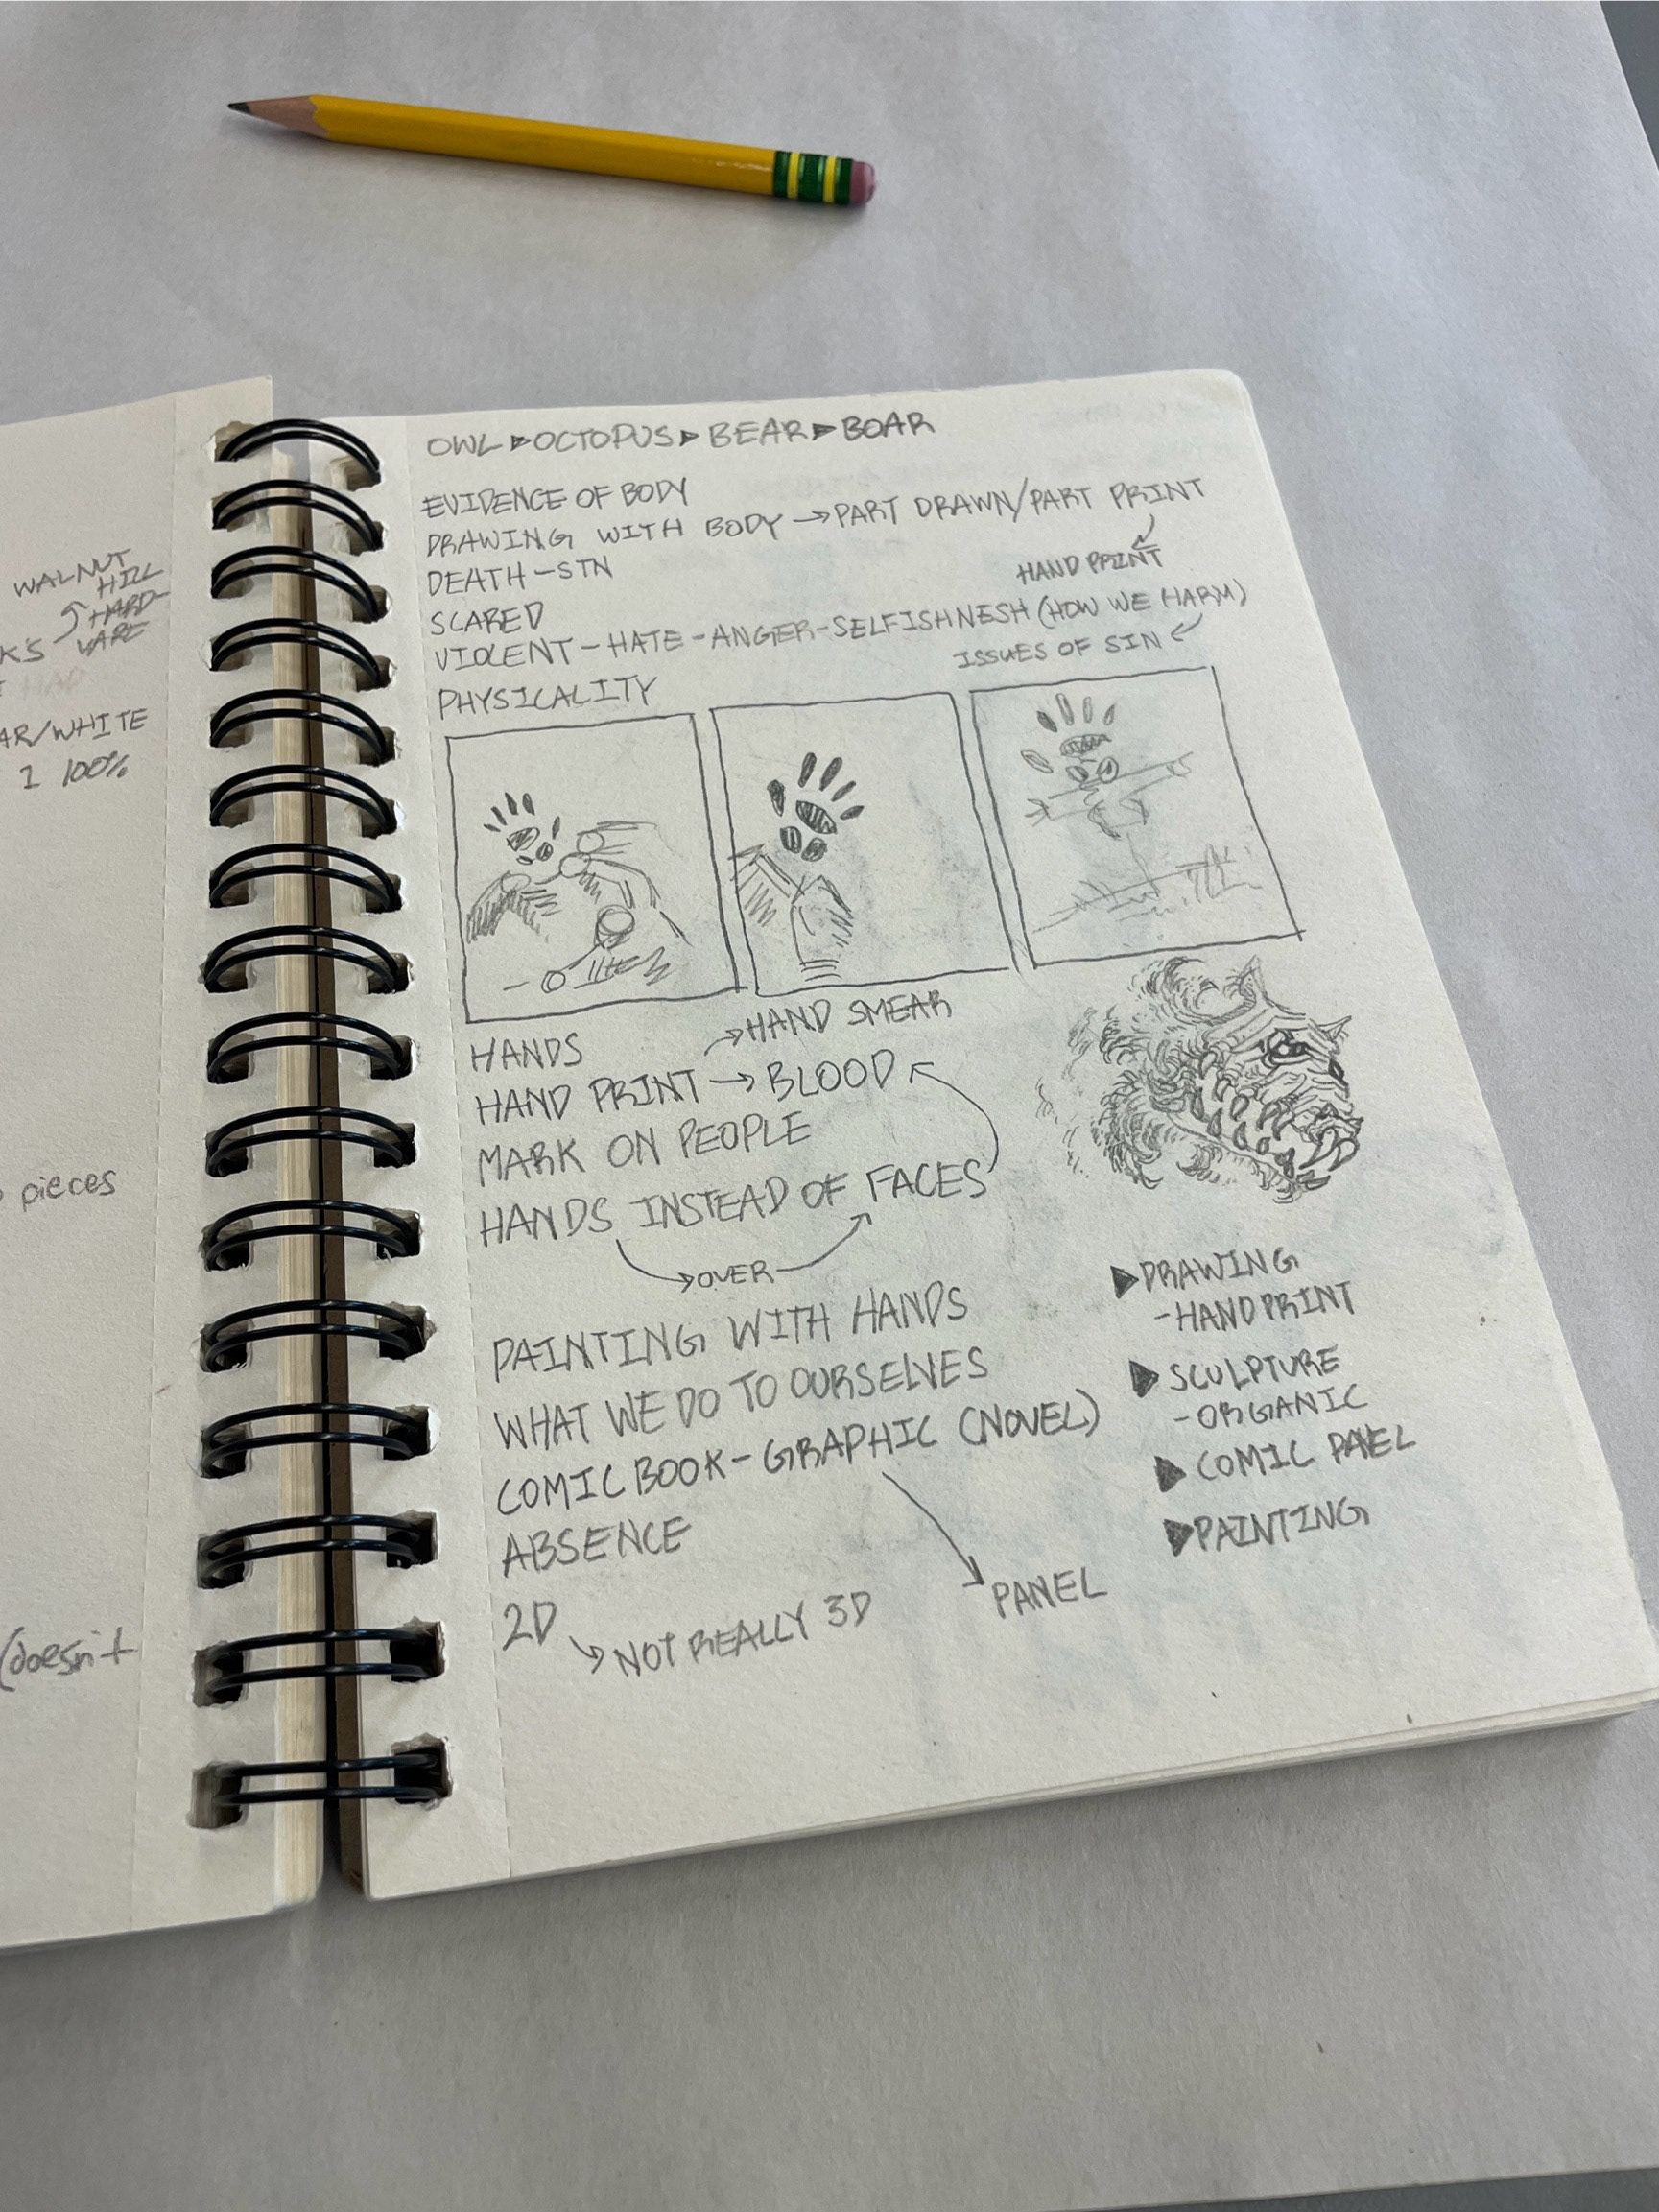 WALNUT
HILL
HARD-
WARE
K'S
AR/WHITE
1 100%
pieces
(doesn't
OWL▶OCTOPUS▶BEAR▶BOAR
EVIDENCE OF BODY
DRAWING WITH BODY →PART DRAWN/PART PRINT
HAND PRINT
DEATH-SIN
SCARED
VIOLENT-HATE-ANGER-SELFISHNESH (HOW WE HARM)
ISSUES OF SIN
PHYSICALITY
HANDS
→HAND SMEAR
HAND PRINT → BLOOD
MARK ON PEOPLE
HANDS INSTEAD OF FACES
OVER
PAINTING WITH HANDS
WHAT WE DO TO OURSELVES
COMIC BOOK-GRAPHIC (NOVEL)
ABSENCE
PANEL
2D
NOT REALLY 3D
▶DRAWING
-HANDPRINT
▶SCULPTURE
-ORGANIC
▶COMIC PANEL
▶PAINTING